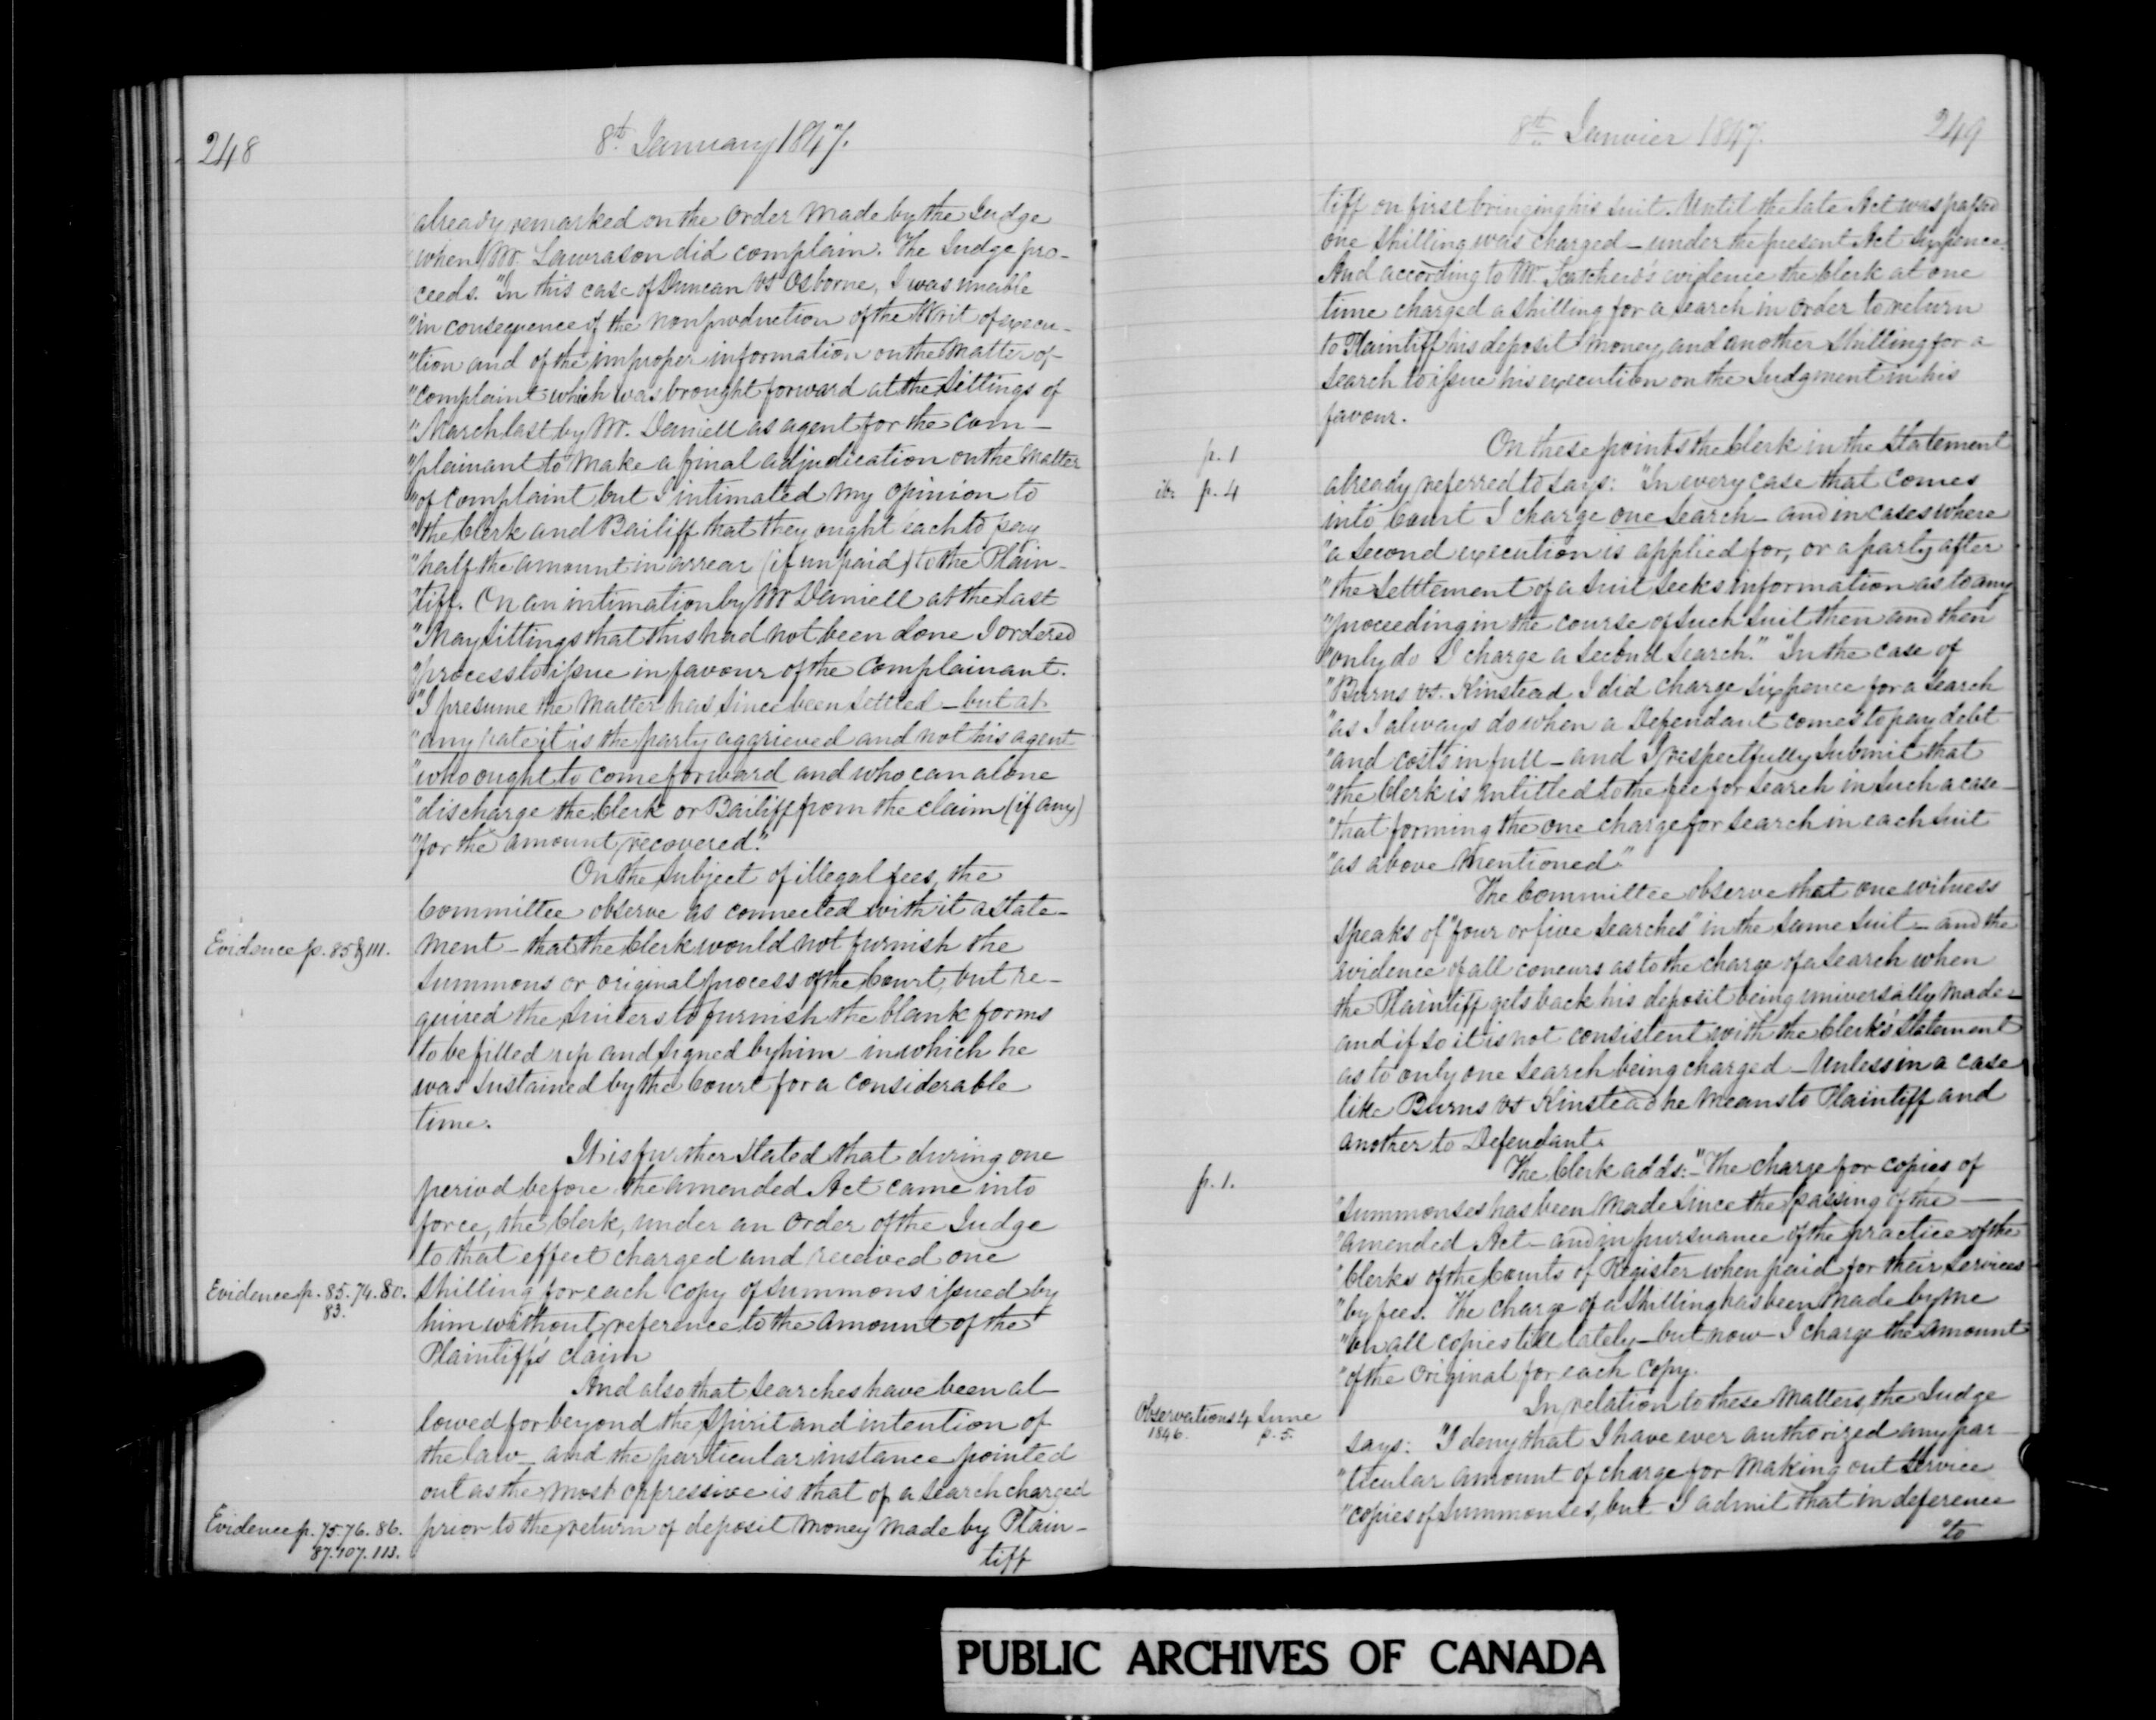 248
8th January 1847.
already remarked on the order made by the Judge
when Mr. Lawrason did complain. The Judge pro-
ceeds. "In this case of Duncan vs Osborne, I was unable
"in consequence of the nonproduction of the Writ of execu-
"tion and of the improper information on the matter of
"complaint which was brought forward at the Sittings of
"March last by Mr. Daniell as agent for the com-
"plainant to make a final adjudication on the matter
"of complaint but I intimated my opinion to
"the Clerk and Bailiff that they ought each to pay
"half the amount in arrear (if unpaid) to the Plain-
"tiff. On an intimation by Mr Daniell at the last
"May Sittings that this had not been done I ordered
"process to issue in favour of the Complainant.
"I presume the matter has since been settled - but at
"any rate it is the party aggrieved and not his agent
"who ought to come forward and who can alone
"discharge the Clerk or Bailiff from the claim (if any)
"for the amount recovered."
On the Subject of illegal fees, the
Committee observe as connected with it a state-
Evidence p. 85 & 111.
ment - that the Clerk would not furnish the
Summons or original process of the Court, but re-
quired the Suiters to furnish the blank forms
to be filled up and signed by him - in which he
was sustained by the Court for a considerable
time.
It is further stated that during one
period before the amended Act came into
force, the Clerk, under an order of the Judge
to that effect charged and received one
Evidence p. 85. 74. 80.
83.
shilling for each copy of summons issued by
him without reference to the amount of the
Plaintiff's claim
And also that searches have been al-
lowed for beyond the spirit and intention of
the law - and the particular instance pointed
out as the most oppressive is that of a search charged
Evidence p. 75. 76. 86.
87. 107. 113.
prior to the return of deposit money made by Plain-
tiff
8th Janvier 1847.
249
tiff on first bringing his suit. Until the late Act was passed
one shilling was charged - under the present Act sixpence.
And according to Mr. Scatcherd's evidence the Clerk at one
time charged a shilling for a search in order to return
to Plaintiff his deposit money, and another shilling for a
search to issue his execution on the Judgment in his
favour.
p. 1
On these points the Clerk in the Statement
ib. p. 4
already referred to says: "In every case that comes
into Court I charge one search - and in cases where
"a second execution is applied for, or a party after
"the settlement of a suit seeks information as to any
"proceeding in the course of such suit then and then
"only do I charge a second search." "In the case of
"Burns vs. Kinstead I did charge sixpence for a search
"as I always do when a Defendant comes to pay debt
"and costs in full - and I respectfully submit that
"the Clerk is intitled to the fee for search in such a case -
"that forming the one charge for search in each suit
"as above mentioned"
The Committee observe that one witness
speaks of "four or five searches" in the same suit - and the
evidence of all concurs as to the charge of a search when
the Plaintiff gets back his deposit being universally made -
and if so it is not consistent with the Clerk's statement
as to only one search being charged - Unless in a case
like Burns vs Kinstead he means to Plaintiff and
another to Defendant.
p. 1.
The Clerk adds: - "The charge for copies of
"summonses has been made since the passing of the
"amended Act - and in pursuance of the practice of the
"Clerks of the Courts of Register when paid for their services
"by fees. The charge of a shilling has been made by me
"on all copies till lately - but now I charge the amount
"of the original for each copy.
Observations 4 June
1846. p. 5.
In relation to these matters, the Judge
says: "I deny that I have ever authorized any par-
"ticular amount of charge for making out service
"copies of summonses, but I admit that in deference
"to
PUBLIC ARCHIVES OF CANADA